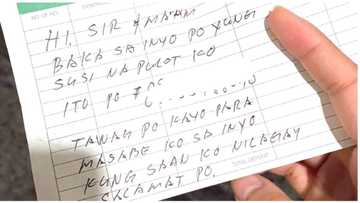 HI, SIR / MA'AM
BAKA SA INYO PO YUNG
SUSI NA PULOT KO
ITO PO
TAWAG PO KAYO PARA
MASABE KO SA INYO
KUNG SAAN KO NILAGAY
SALAMAT PO.